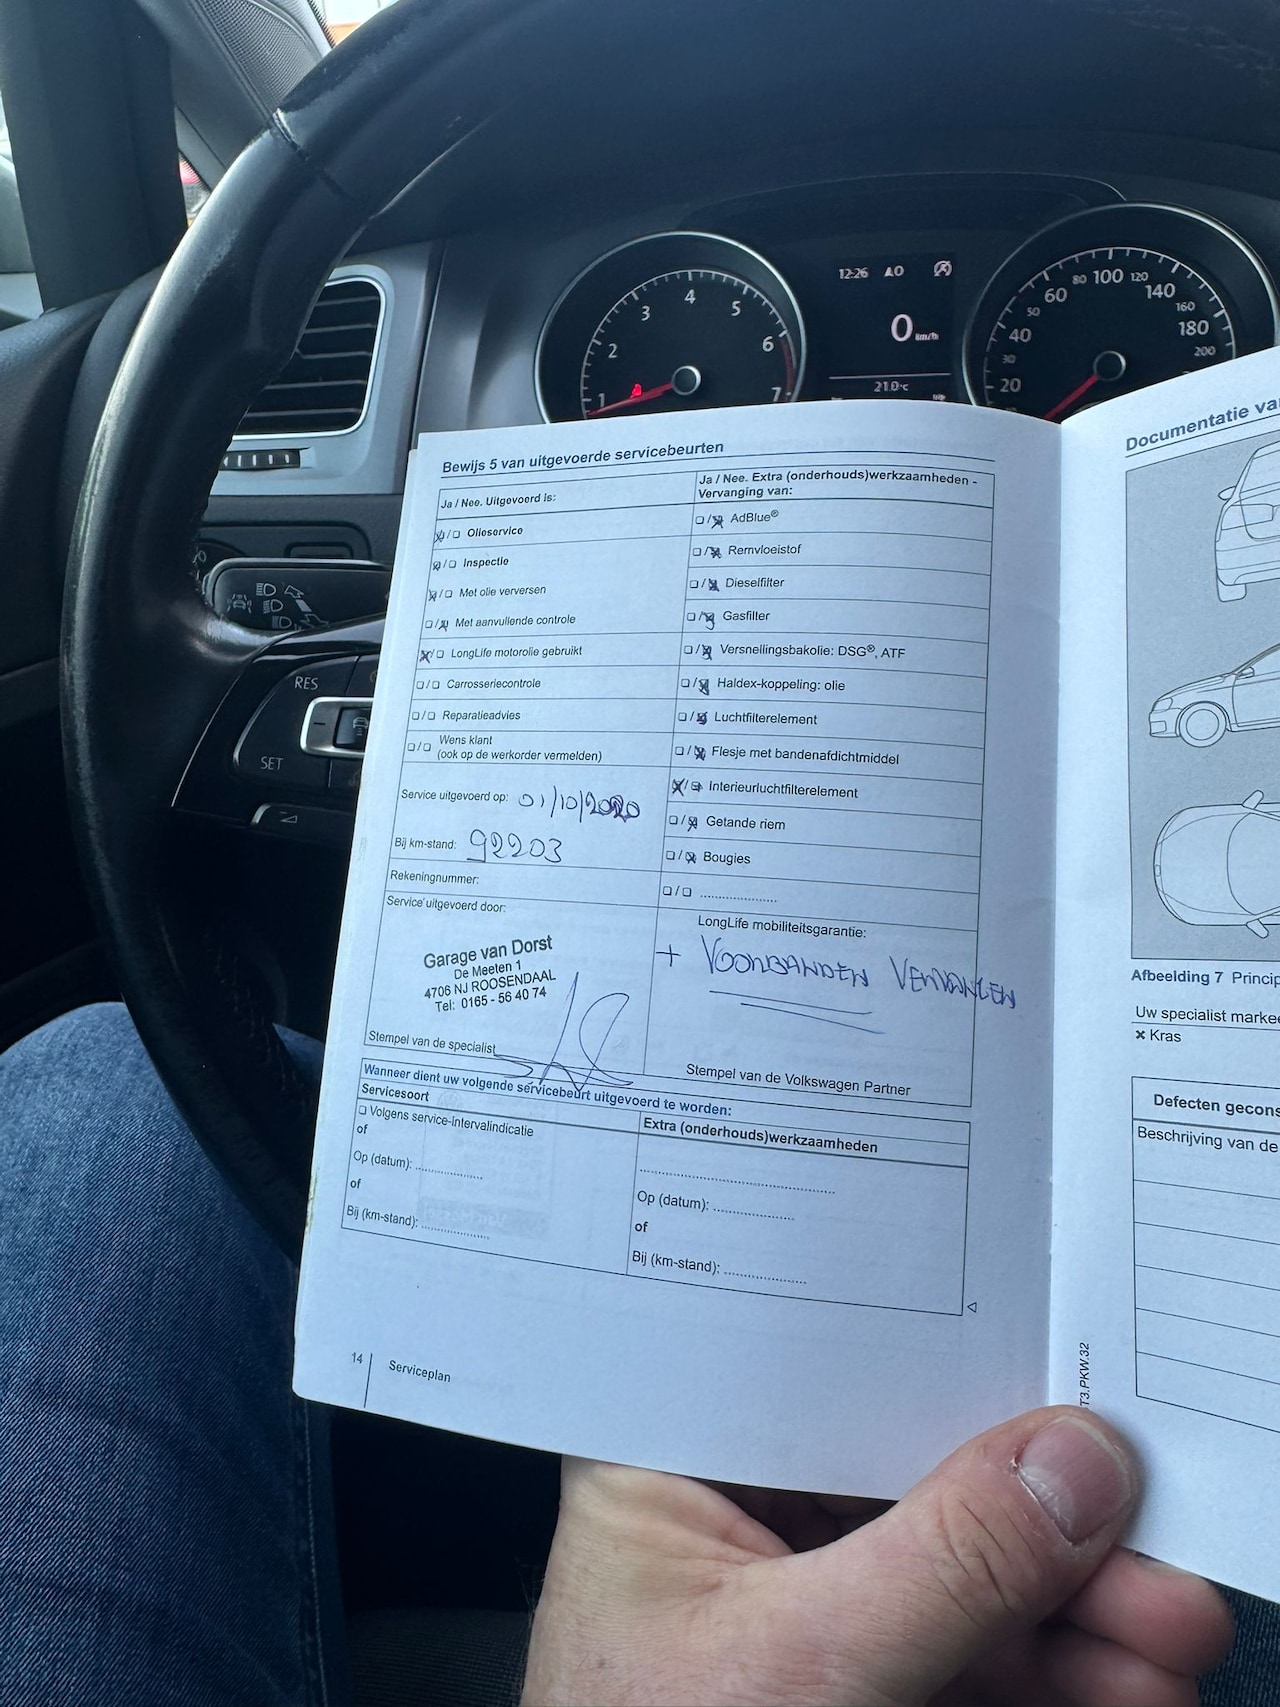 12:26
0 km/h
21.0°C
1 2 3 4 5 6 7
20 30 40 50 60 80 100 120 140 160 180 200
RES
SET
Bewijs 5 van uitgevoerde servicebeurten
Ja / Nee. Uitgevoerd is:
☒/☐ Olieservice
☒/☐ Inspectie
☒/☐ Met olie verversen
☐/☒ Met aanvullende controle
☒/☐ LongLife motorolie gebruikt
☐/☐ Carrosseriecontrole
☐/☐ Reparatieadvies
☐/☐ Wens klant
(ook op de werkorder vermelden)
Service uitgevoerd op: 01/10/2020
Bij km-stand: 92203
Rekeningnummer:
Service uitgevoerd door:
Garage van Dorst
De Meeten 1
4706 NJ ROOSENDAAL
Tel: 0165 - 56 40 74
Stempel van de specialist
Ja / Nee. Extra (onderhouds)werkzaamheden -
Vervanging van:
☐/☒ AdBlue®
☐/☒ Remvloeistof
☐/☒ Dieselfilter
☐/☒ Gasfilter
☐/☒ Versnellingsbakolie: DSG®, ATF
☐/☒ Haldex-koppeling: olie
☐/☒ Luchtfilterelement
☐/☒ Flesje met bandenafdichtmiddel
☒/☐ Interieurluchtfilterelement
☐/☒ Getande riem
☐/☒ Bougies
☐/☐ ....................
LongLife mobiliteitsgarantie:
+ VOORBANDEN VERVANGEN
Stempel van de Volkswagen Partner
Wanneer dient uw volgende servicebeurt uitgevoerd te worden:
Servicesoort
☐ Volgens service-Intervalindicatie
of
Op (datum): ..................
of
Bij (km-stand): ..................
Extra (onderhouds)werkzaamheden
..................................................
Op (datum): .....................
of
Bij (km-stand): .....................
14
Serviceplan
Documentatie va
Afbeelding 7 Princip
Uw specialist marke
✖ Kras
Defecten gecons
Beschrijving van de
T3.PKW.32